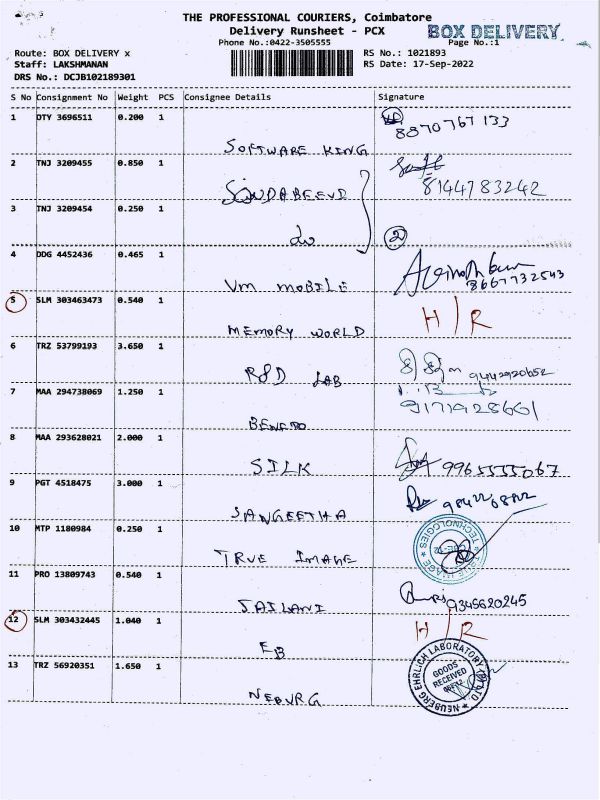 THE PROFESSIONAL COURIERS, Coimbatore
Delivery Runsheet - PCX
BOX DELIVERY
Phone No.:0422-3505555
Page No.:1
Route: BOX DELIVERY x
RS No.: 1021893
Staff: LAKSHMANAN
RS Date: 17-Sep-2022
DRS No.: DCJB102189301
S No Consignment No Weight PCS Consignee Details Signature
1 DTY 3696511 0.200 1
8870767133
SOFTWARE KING
2 TNJ 3209455 0.850 1
8144783242
3 TNJ 3209454 0.250 1
do
2
4 DDG 4452436 0.465 1
8667732543
Vm MOBILE
5 SLM 303463473 0.540 1
H/R
MEMORY WORLD
6 TRZ 53799193 3.650 1
9442920652
R&D LAB
7 MAA 294738069 1.250 1
9171928661
8 MAA 293628021 2.000 1
SILK
9965555067
9 PGT 4518475 3.000 1
SANGEETHA
10 MTP 1180984 0.250 1
TRUE IMAGE
TRUE IMAGE TECHNOLOGIES
11 PRO 13809743 0.540 1
9345620245
SAILANI
12 SLM 303432445 1.040 1
H/R
EB
13 TRZ 56920351 1.650 1
NEUBERG EHRLICH LABORATORY (P) LTD
GOODS
RECEIVED
NEBURG